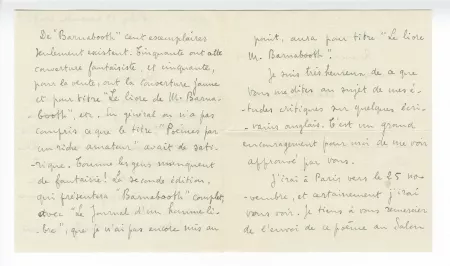 De "Barnabooth" cent exemplaires
seulement existent. Cinquante ont cette
couverture fantaisiste, et cinquante,
pour la vente, ont la couverture jaune
et pour titre "Le livre de Mr. Barna-
booth", etc. En général on n'a pas
compris ce que le titre: "Poèmes par
un riche amateur" avait de sati-
rique. Comme les gens manquent
de fantaisie! La seconde édition,
qui présentera "Barnabooth" complet,
avec "Le Journal d'un homme li-
bre", que je n'ai pas encore mis au
point, aura pour titre "Le livre
Mr. Barnabooth".
Je suis très heureux de ce que
vous me dites au sujet de mes é-
tudes critiques sur quelques écri-
vains anglais. C'est un grand
encouragement pour moi de me voir
approuvé par vous.
J'irai à Paris vers le 25 no-
vembre, et certainement j'irai
vous voir. Je tiens à vous remercier
de l'envoi de ce poème au Salon